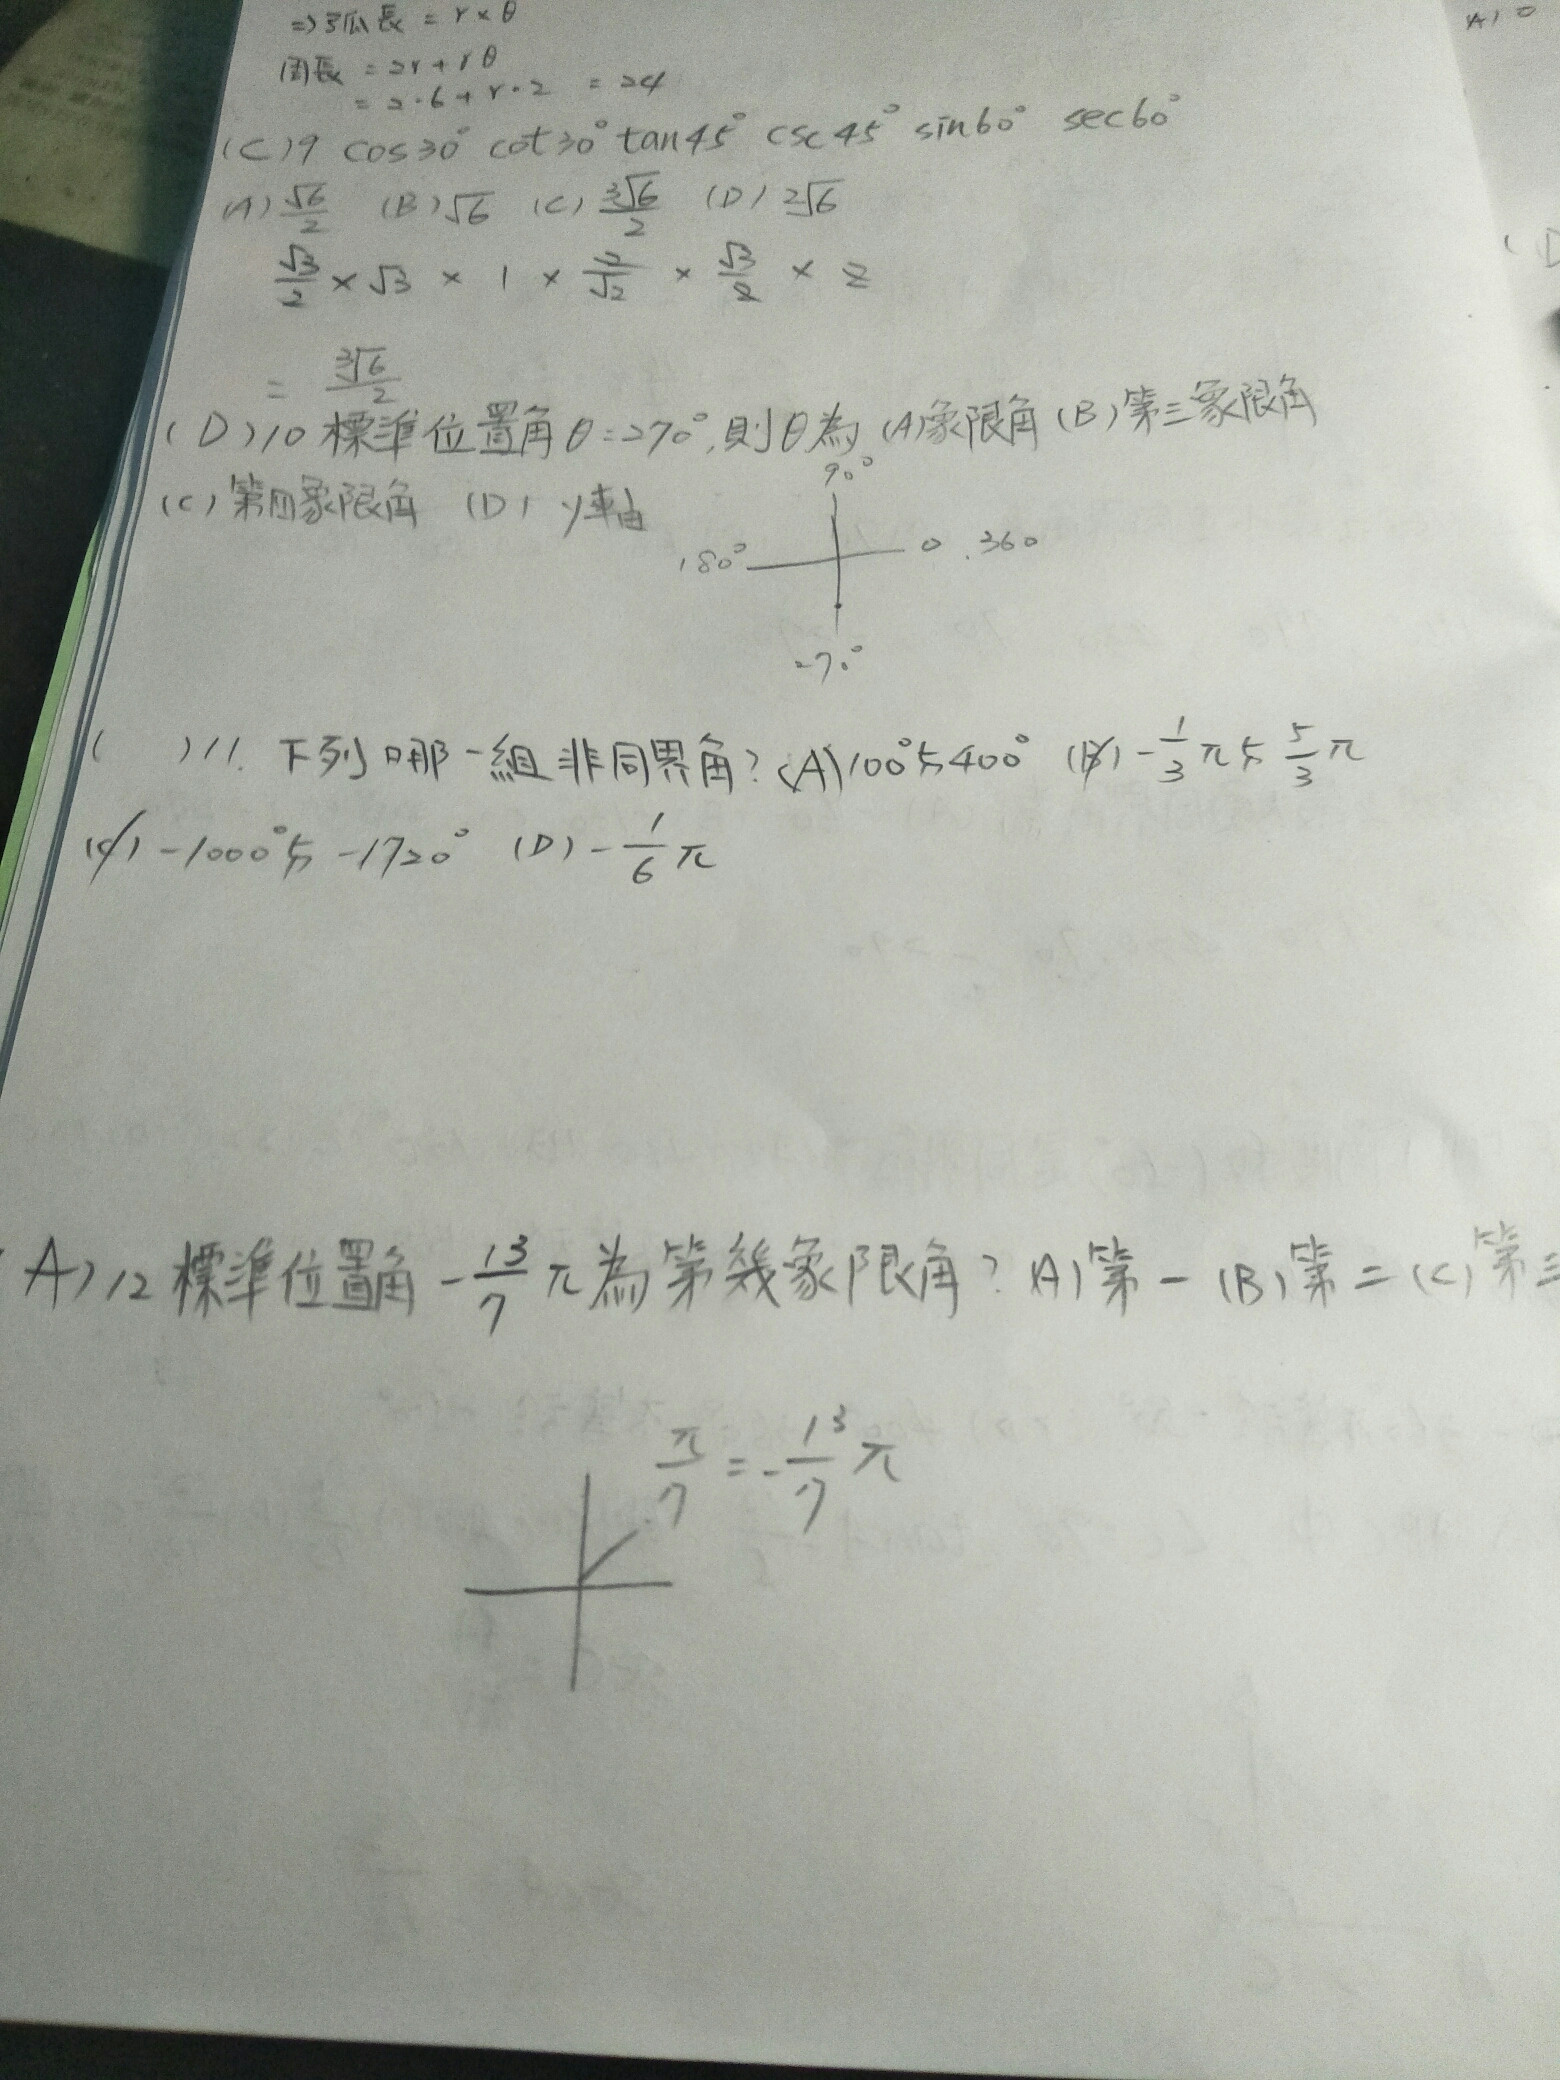 ⇒弧長 = r×θ
周長 = 2r+rθ
= 2·6+r·2 = 24
(C)9 cos30° cot30° tan45° csc45° sin60° sec60°
(A) √6/2 (B)√6 (C) 3√6/2 (D) 2√6
√3/2 × √3 × 1 × 2/√2 × √3/2 × 2
= 3√6/2
(D)10 標準位置角θ=270°,則θ為 (A)象限角 (B)第三象限角
(C)第四象限角 (D) y軸
90°
180° 0 .360
270°
( )11. 下列哪一組非同界角? (A)100°與400° (B) -1/3 π與 5/3 π
(C) -1000°與 -1720° (D) -1/6 π
A)12 標準位置角 -13/7 π為第幾象限角? A)第一 (B)第二 (C)第三
π/7 = -13/7 π